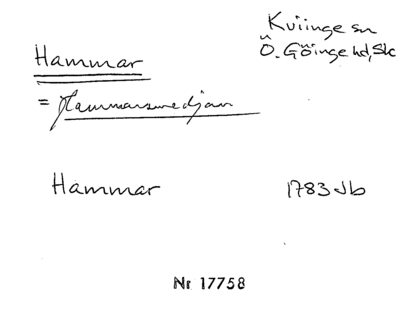 Hammar
Kviinge sn
Ö. Göinge hd, Sk
= Hammarsmedjan
Hammar 1783 Jb
Nr 17758